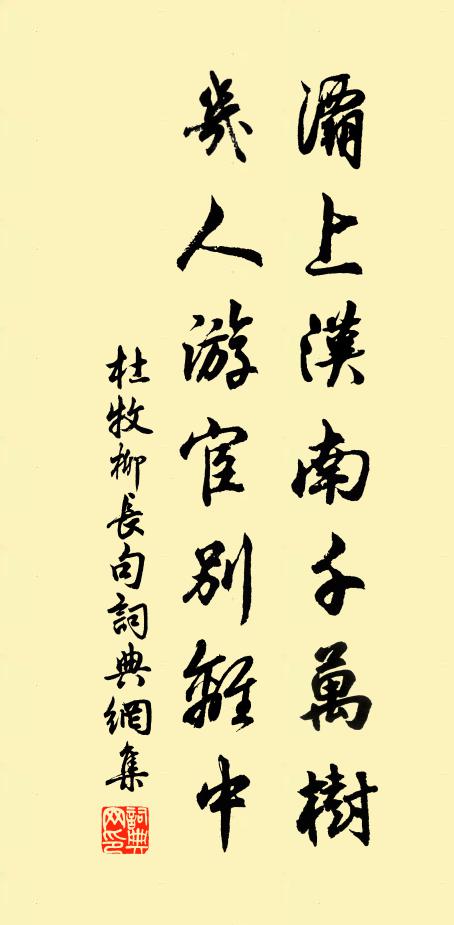 灞上漢南千萬樹
幾人游宦別離中
杜牧柳長句詞典網集
詞典网印